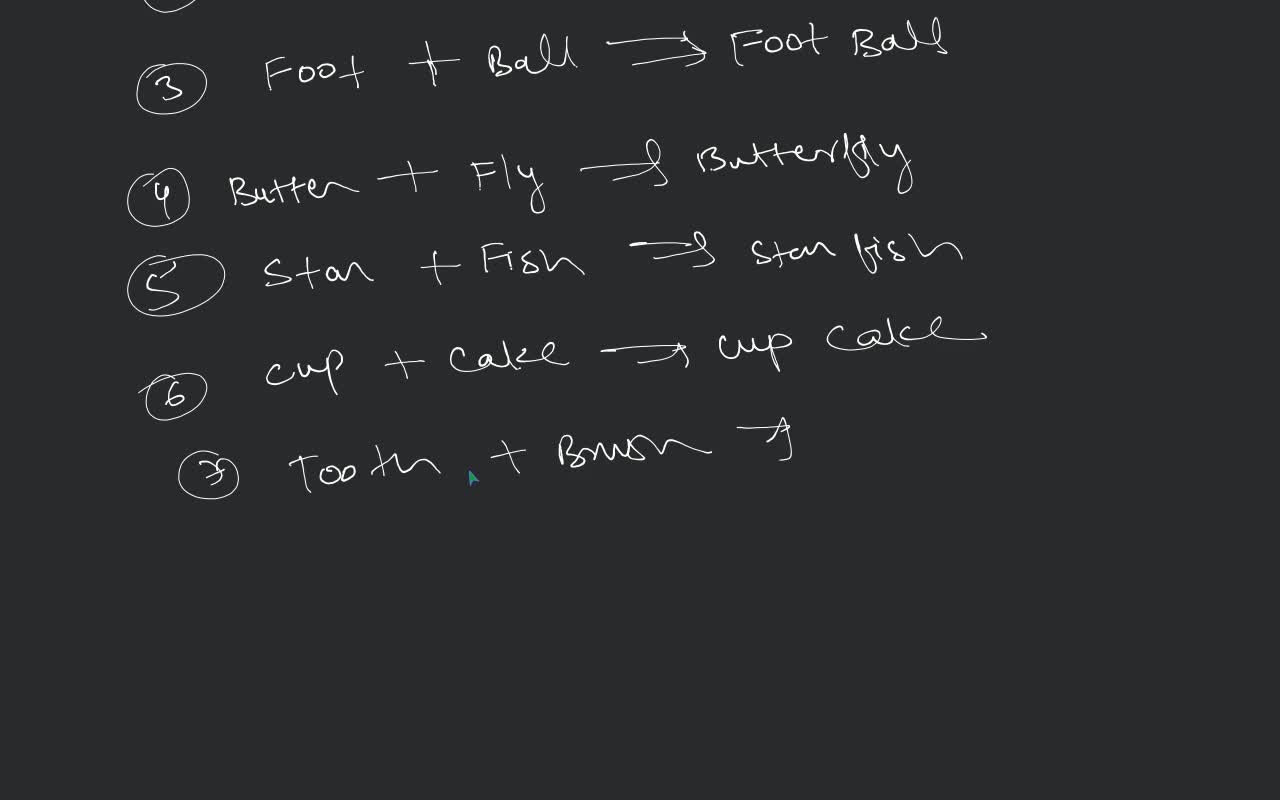 3 Foot + Ball → Foot Ball
4 Butter + Fly → Butterfly
5 Star + Fish → Star fish
6 cup + cake → cup cake
7 Tooth + Brush →